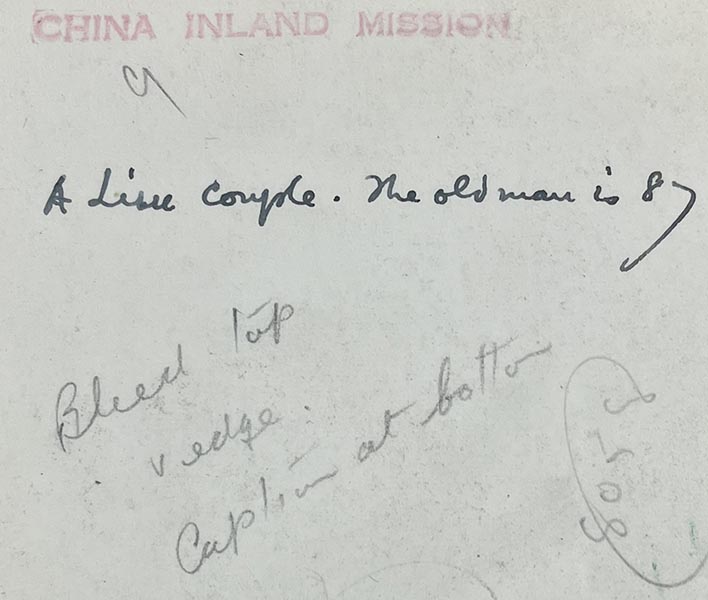 CHINA INLAND MISSION
A Lisu couple. The old man is 87
Bleed top
v edge.
Caption at bottom